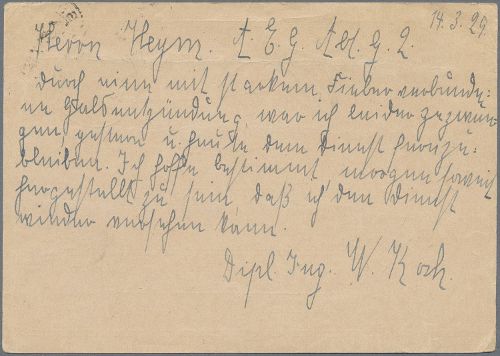 14.3.29.
Herrn Heym. A.E.G. Abt. G. 2.
Durch eine mit starkem Fieber verbunde=
ne Halsentzündung war ich leider gezwun=
gen gestern u. heute dem Dienst fernzu=
bleiben. Ich hoffe bestimmt morgen soweit
hergestellt zu sein, daß ich den Dienst
wieder versehen kann.
Dipl. Ing. W. Koch.